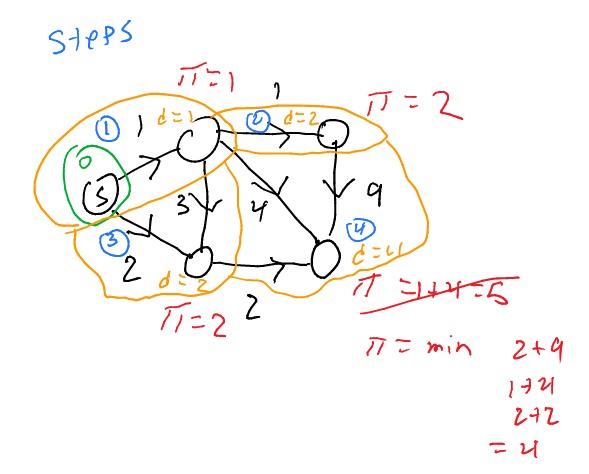 steps
π=1
1
π=2
1
1
d=1
2
d=2
0
S
3
4
9
3
4
2
d=2
d=4
π=2
2
π=1+4=5
π= min 2+9
1+4
2+2
=4